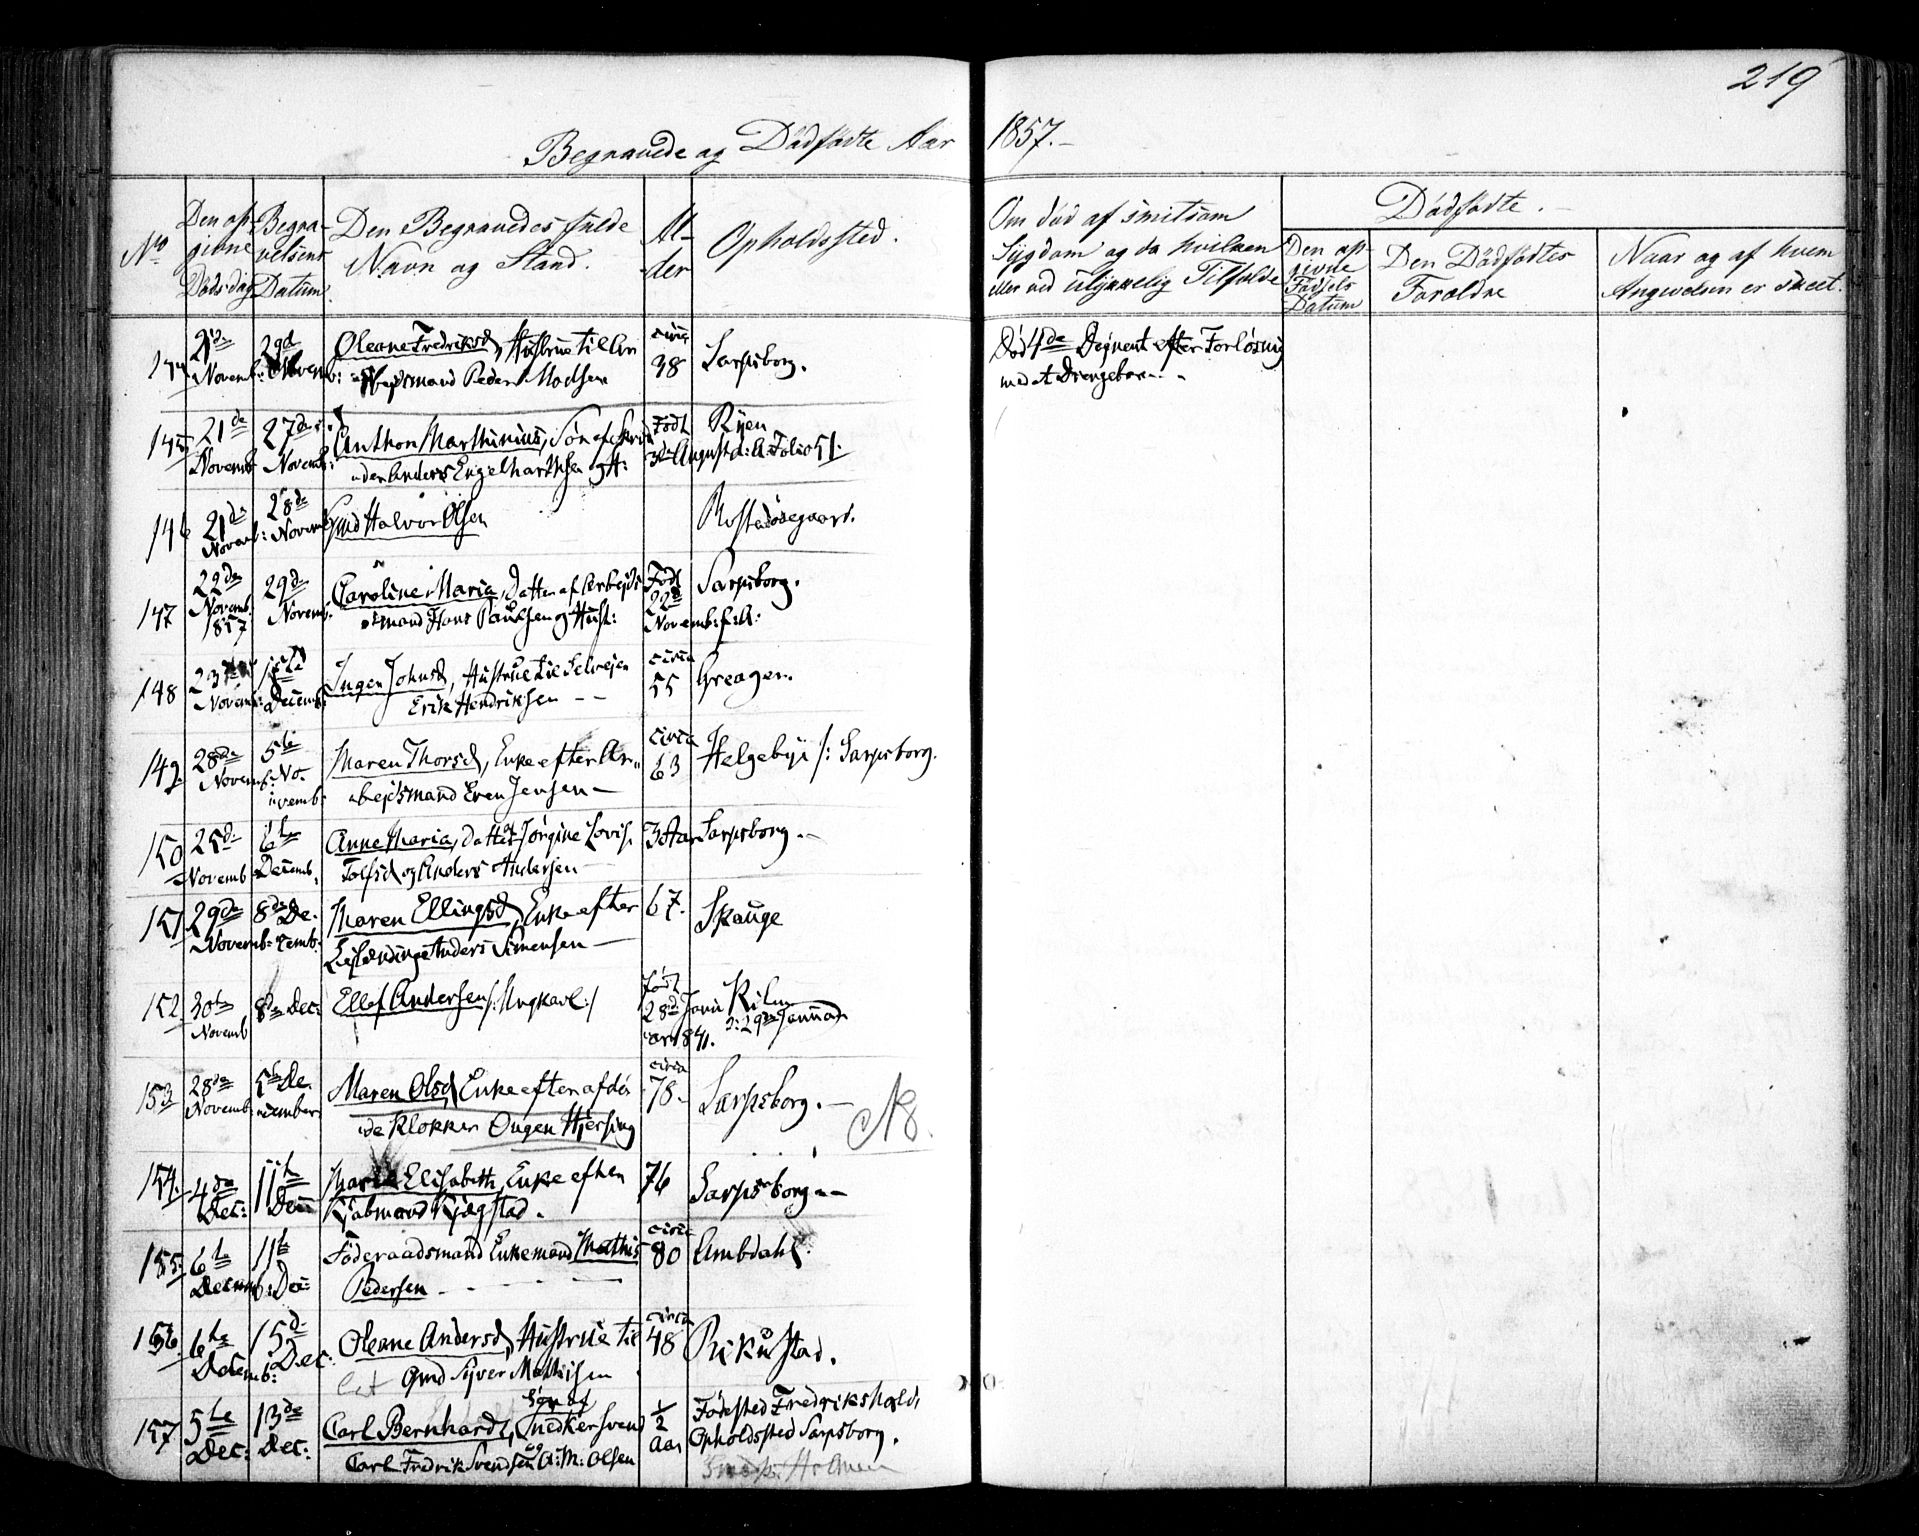 219
Begravede og Dödfödte Aar 1857.-
No
Den op-
givne
Döds dag
Begra-
velsens
Datum
Den Begravedes fulde
Navn og Stand.
Al-
der
Opholdssted.
Om död af smitsom
Sÿgdom og da hvilken
eller ved ulÿkkelig Tilfælde
Dödfödte.-
Den op-
givne
Födsels
Datum
Den Dödfödtes
Forældre
Naar og af hvem
Angivelsen er skeet.
144
21de
Novemb:
29d
Novemb:
Oleane Fredriksd, Hustrue til Ar
bejdsmand Peder Madsen
circa
38
Sarpsborg.
Död 4de Dögnet efter Forlösning
med et Drengebarn.-
145
21de
Novemb
27de
Novemb:
Anthon Marthinius, Sön af Skræ
der Anders Engelharthsen og H:
Födt
3de August d: A. Folio 51.
Rÿen
146
21de
Novemb:
28de
Novemb
Gmd Halvor Olsen
Rostadödegaard.
147
22de
Novemb.
1857
29d
Novemb:
Caroline Maria, Datter af Arbejds
mand Hans Paulsen og Hust:
Födt
22d
Novemb: f: A:
Sarpsborg.
148
23de
Novemb:
1ste
Decemb:
Inger Johnsd, Hustrue til Selvejer
Erik Hendriksen - -
circa
55
Greager.
149.
28de
Novemb:
5te
No-
vemb:
Maren Thorsd, Enke efter Ar-
bejdsmand Even Jensen -
circa
63
Helgebÿe /: Sarpsborg.
150
25de
Novemb
6te
Decemb.
Anne Maria, Datter af Jörgine Lovis.
Tolfsd og Anders Andersen -
3 Aar
Sarpsborg.-
151
29de
Novemb:
8de De-
cemb:
Maren Ellingsd, Enke efter
Anders Simensen -
67.
Skauge
152.
30te
Novemb
8de Dec:
Ellef Andersen /: Ungkarl :/
Födt
28d Janu
ar 1841.
2: 29de Januar
153
28de
Novemb:
5te De-
cember
Maren Olsd, Enke efter afdö-
de Klokker Ougen Hjersing
circa
78.
Sarpsborg.-
154.
4de
Dec:
11te
Dec:
Maria Elisabeth, Enke efter
Kjöbmand Kjægstad.
76
Sarpsborg - -
155.
6te
Decemb:
11te
Dec:
Föderaadsmand Enkemand Mathis
Pedersen - - - -
circa
80
Ambdahl.
156.
6te
Decemb:
15d
Dec:
Oleane Andersd, Hustrue til
Gmd Sÿver Mathisen
circa
48
Rikustad.
157
5te
Dec:
13de
Dec:
Sön af
Carl Bernhard, Snedkersvend
Carl Fredrik Svendsen og A: M: Olsen
1/2
Aar
Födested Fredrikshald,
Opholdssted Sarpsborg.